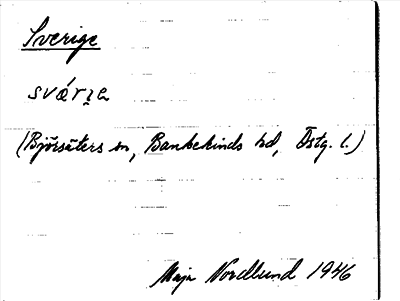 Sverige
svǽrı̨a
(Björsäters sn, Bankekinds hd, Östg. l.)
Maja Nordlund 1946